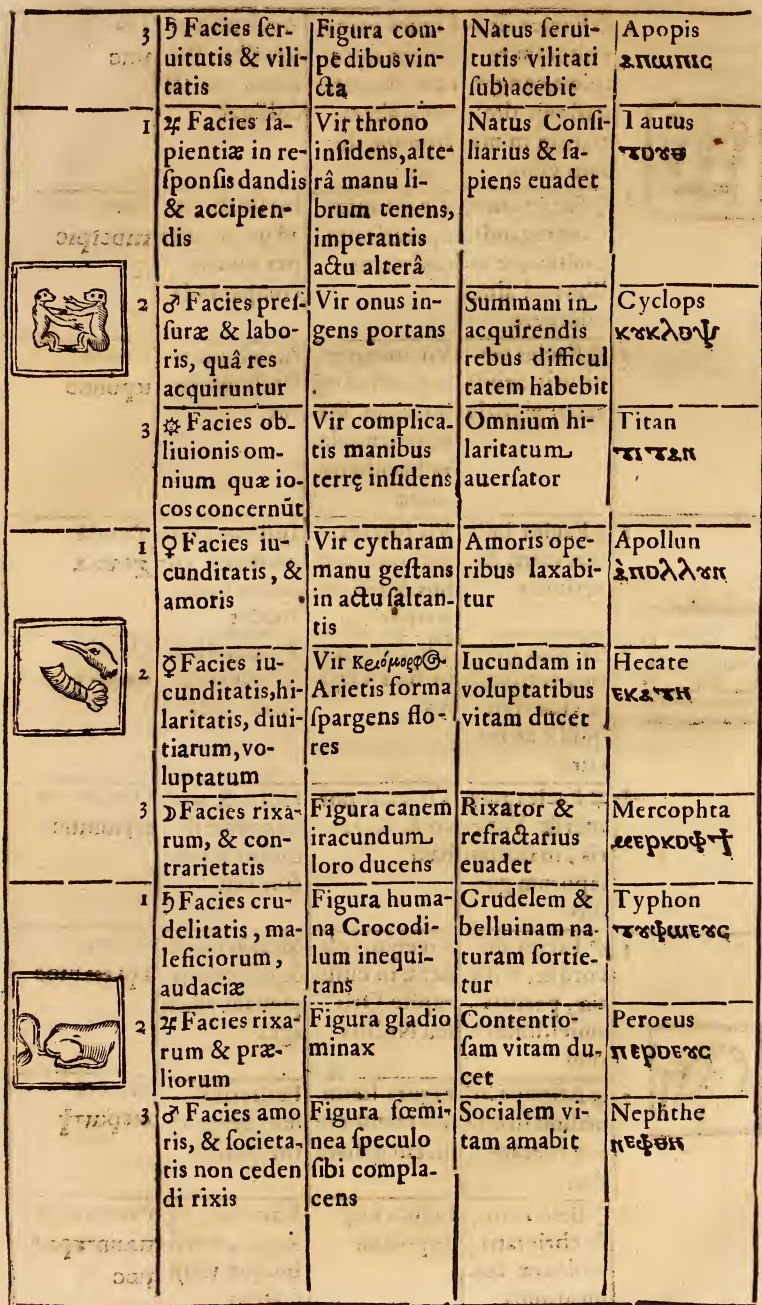 3
♄ Facies ſer-
uitutis & vili-
tatis
Figura com-
pedibus vin-
cta
Natus ſerui-
tutis vilitati
ſubiacebit
Apopis
ⲁⲡⲱⲡⲓⲥ
1
♃ Facies ſa-
pientiæ in re-
ſponſis dandis
& accipien-
dis
Vir throno
inſidens, alte-
râ manu li-
brum tenens,
imperantis
actu alterâ
Natus Conſi-
liarius & ſa-
piens euadet
Tautus
ⲧⲟⲩⲑ
2
♂ Facies preſ-
ſuræ & labo-
ris, quâ res
acquiruntur
Vir onus in-
gens portans
Summam in
acquirendis
rebus difficul
tatem habebit
Cyclops
ⲕⲩⲕⲗⲟⲯ
3
☼ Facies ob-
liuionis om-
nium quæ io-
cos concernũt
Vir complica-
tis manibus
terrę inſidens
Omnium hi-
laritatum
auerſator
Titan
ⲧⲓⲧⲁⲛ
1
♀ Facies iu-
cunditatis, &
amoris
Vir cytharam
manu geſtans
in actu ſaltan-
tis
Amoris ope-
ribus laxabi-
tur
Apollun
ⲁⲡⲟⲗⲗⲩⲛ
2
☿ Facies iu-
cunditatis, hi-
laritatis, diui-
tiarum, vo-
luptatum
Vir κριόμορφος
Arietis forma
ſpargens flo-
res
Iucundam in
voluptatibus
vitam ducet
Hecate
ⲉⲕⲁⲧⲏ
3
☽ Facies rixa-
rum, & con-
trarietatis
Figura canem
iracundum
loro ducens
Rixator &
refractarius
euadet
Mercophta
ⲙⲉⲣⲕⲟⲫϯ
1
♄ Facies cru-
delitatis, ma-
leficiorum,
audaciæ
Figura huma-
na Crocodi-
lum inequi-
tans
Crudelem &
belluinam na-
turam ſortie-
tur
Typhon
ⲧⲩⲫⲱⲉⲩⲥ
2
♃ Facies rixa-
rum & præ-
liorum
Figura gladio
minax
Contentio-
ſam vitam du-
cet
Peroeus
ⲡⲉⲣⲟⲉⲩⲥ
3
♂ Facies amo
ris, & ſocieta-
tis non ceden
di rixis
Figura fœmi-
nea ſpeculo
ſibi compla-
cens
Socialem vi-
tam amabit
Nephthe
ⲛⲉⲫⲑⲏ